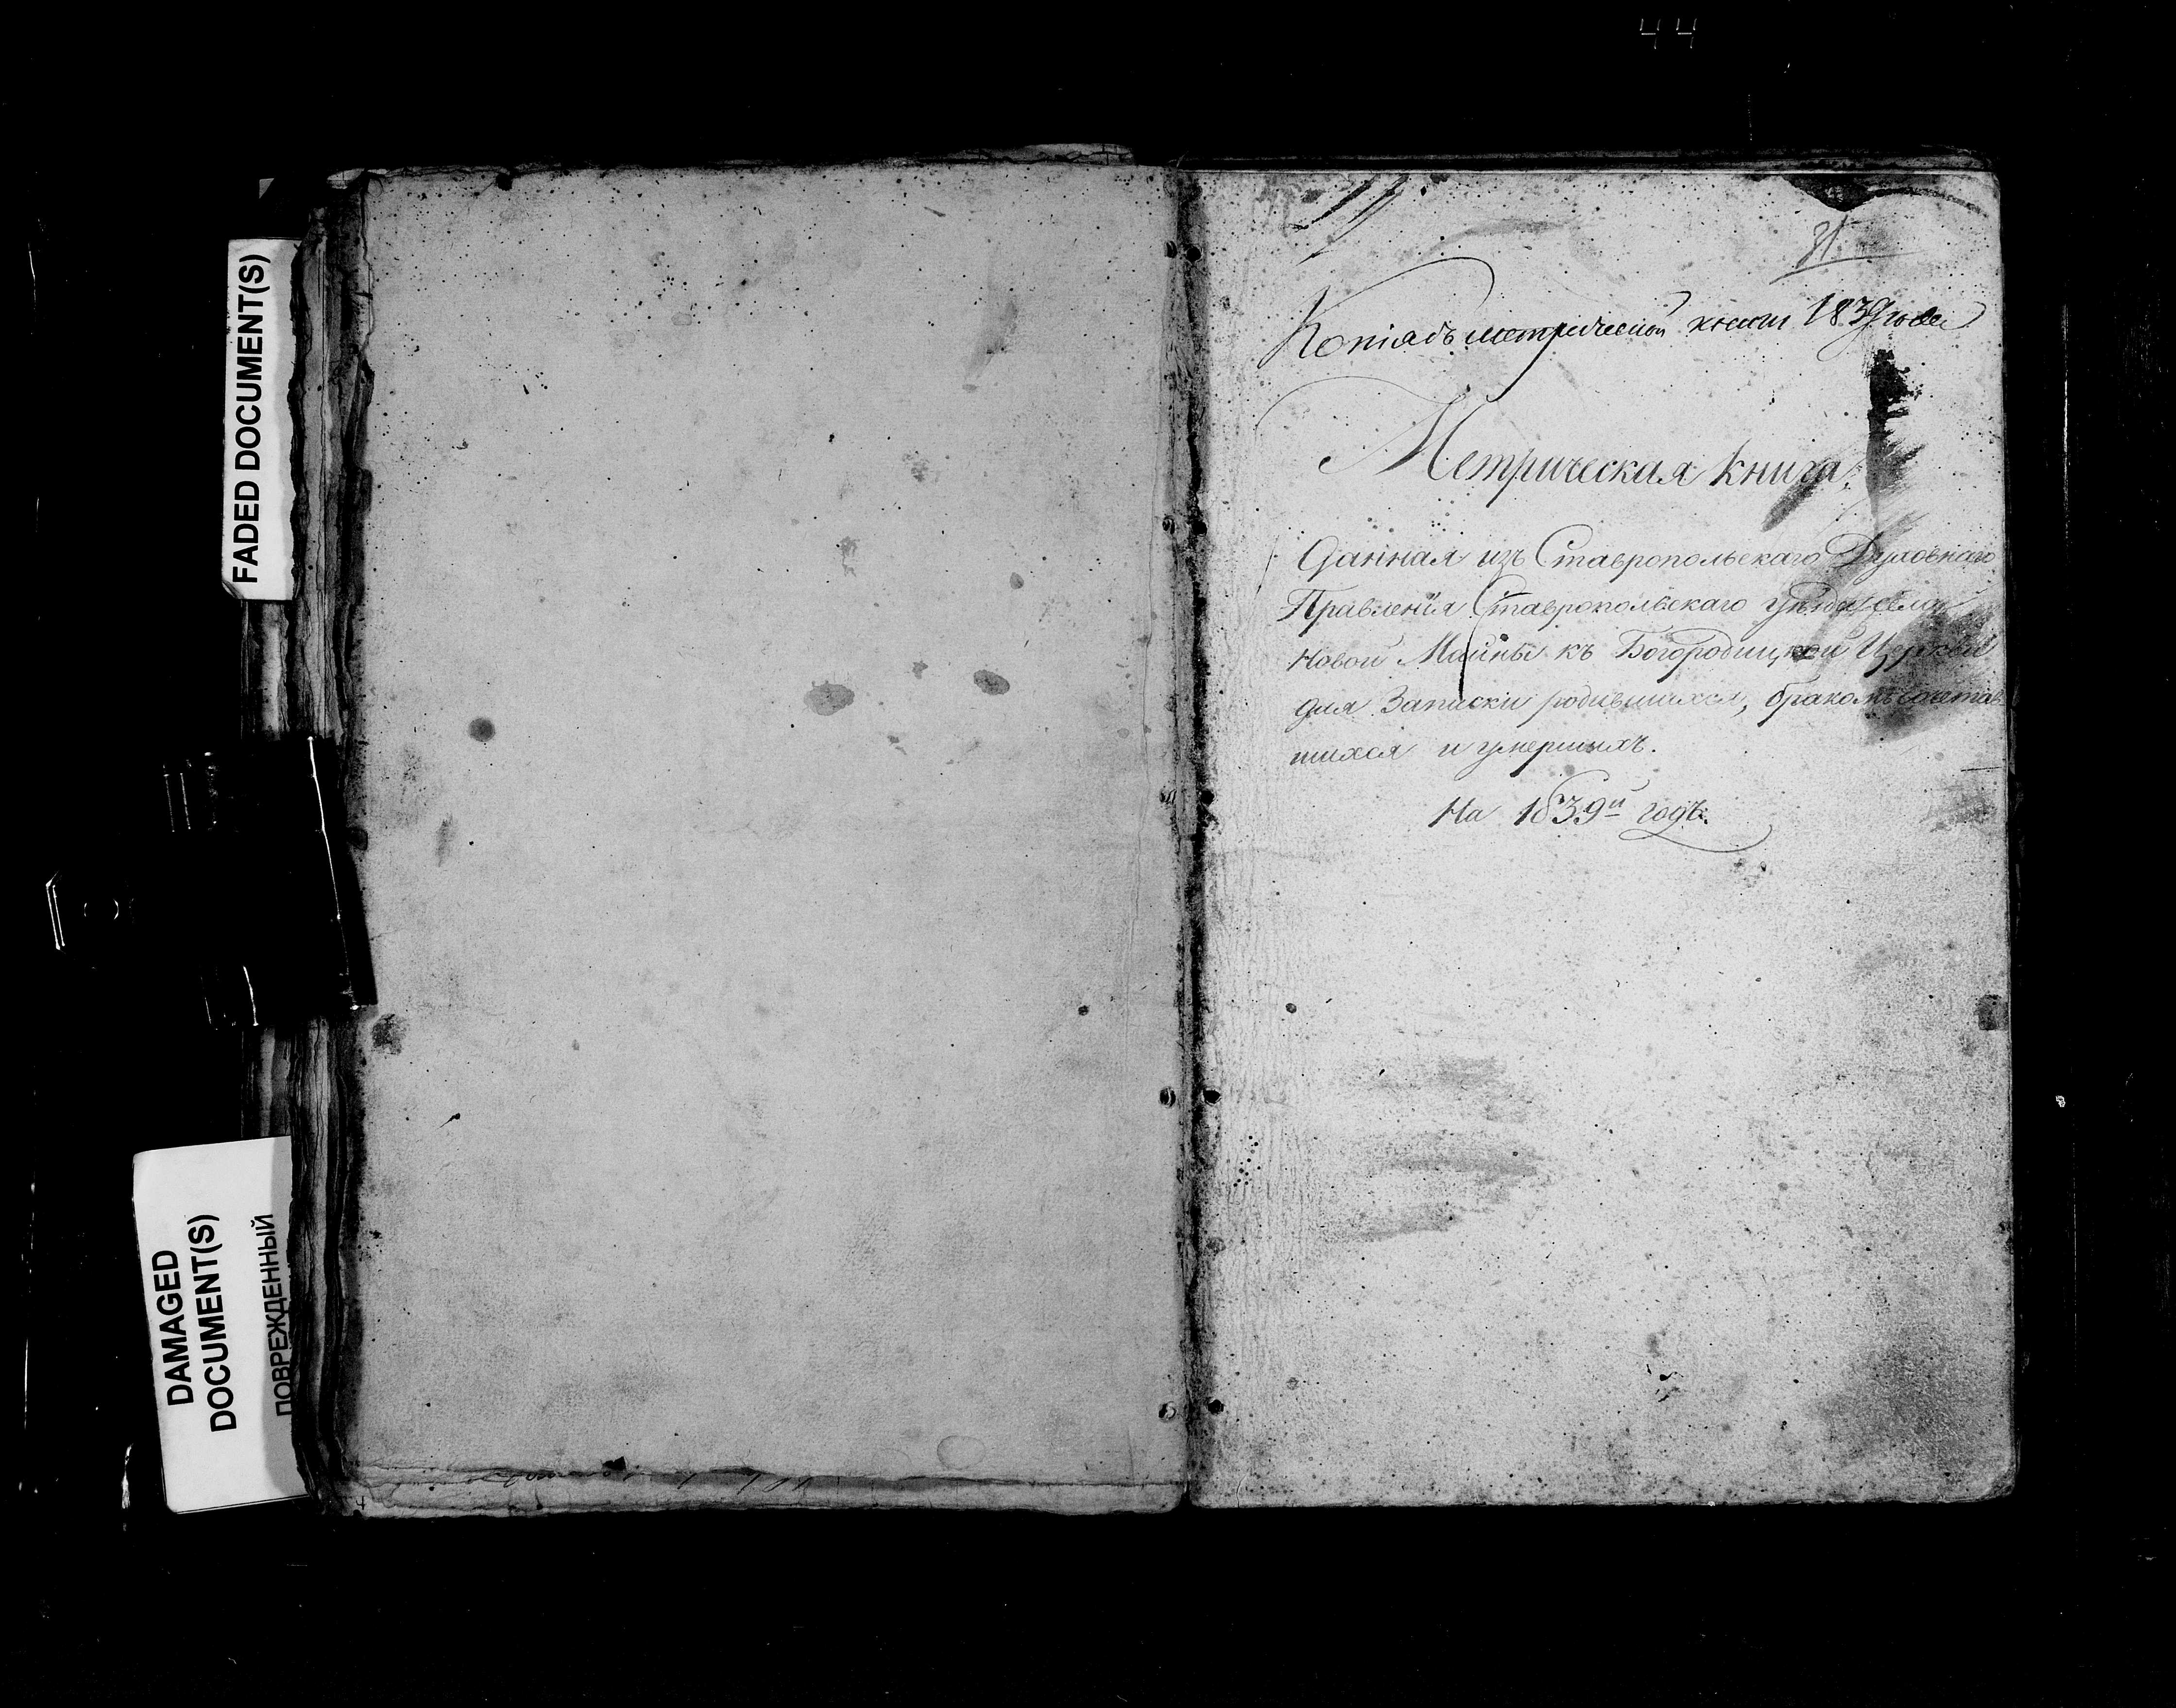 44
FADED DOCUMENT(S)
DAMAGED
DOCUMENT(S)
ПОВРЕЖДЕННЫЙ
Копія съ метрической книги 1839 года
Метрическая книга.
Данная изъ Ставропольскаго Духовнаго
Правленія Ставропольскаго уѣзда села
Новой Майны къ Богородицкой Церкви
для Записки родившихся, бракомъ сочетав
шихся и умершихъ.
На 1839й годъ.